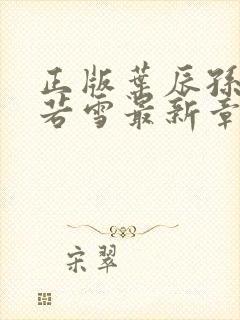 正版叶辰孙
若雪最新章
宋翠